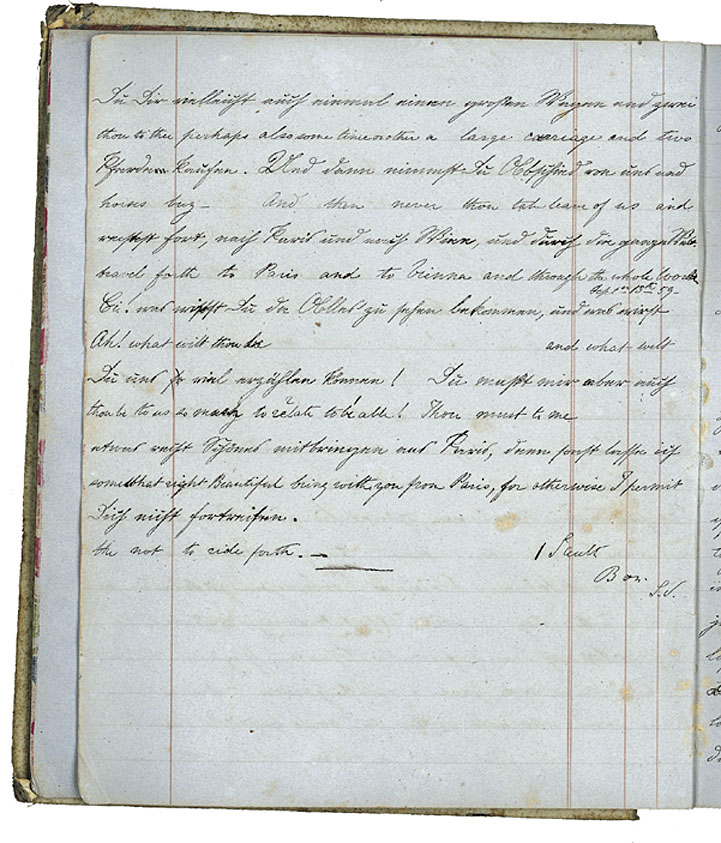 Du Dir vielleicht auch einmal einen großen Wagen und zwei
thou to thee perhaps also some time or other a large carriage and two
Pferde kaufen. Und dann nimmst Du Abschied von uns und
horses buy– And then never thou take leave of us and
reisest fort, nach Paris und nach Wien, und durch die ganze Welt.
travel forth to Paris and to Vienna and through the whole World
Sep. 1st 1859–
Ei! was wirst Du da Alles zu sehen bekommen, und was wirst
Ah! what wilt thou and what wilt
Du uns so viel erzählen können! Du mußt mir aber auch
thou be to us so much to relate to be able! Thou must to me
etwas recht Schönes mitbringen aus Paris, denn sonst lasse ich
somewhat right Beautiful bring with you from Paris, for otherwise I permit
Dich nicht fortreisen.
the not to ride forth.–
S.S.